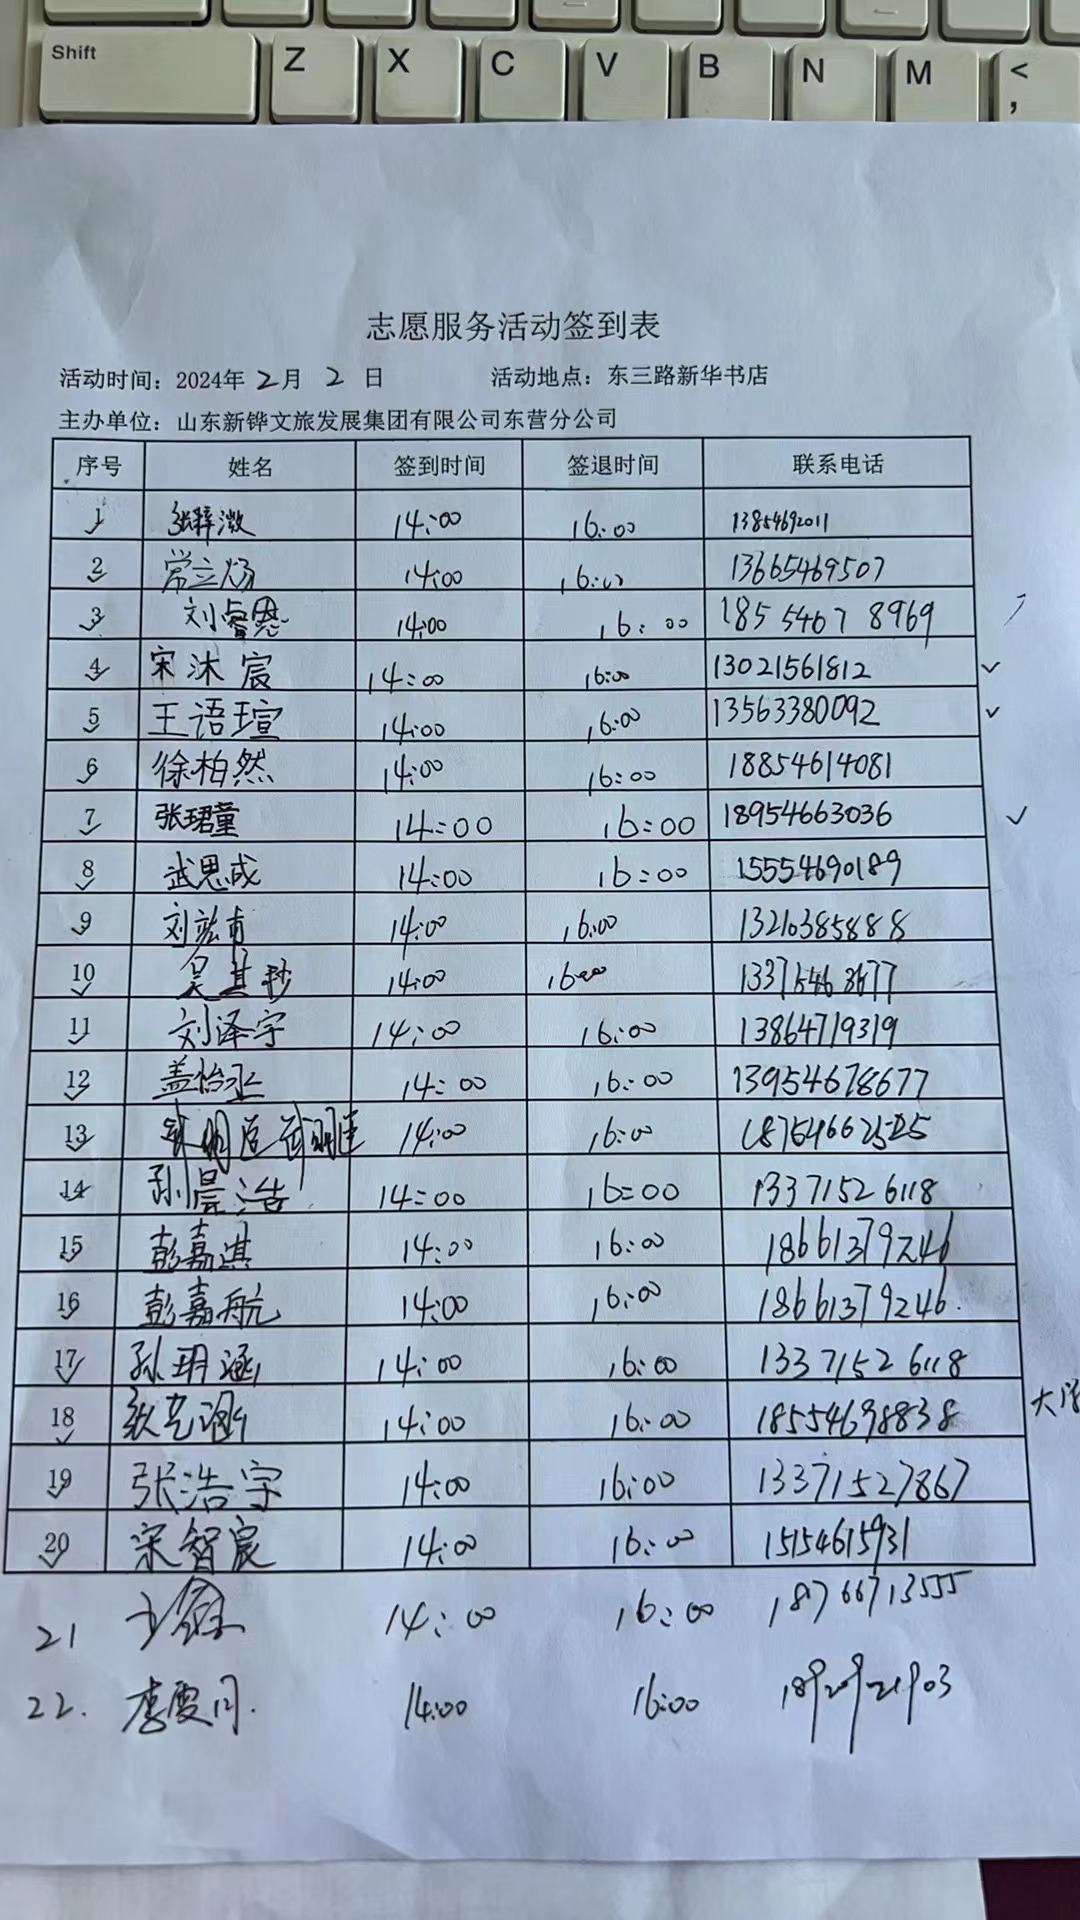 Shift Z X C V B N M < ,
志愿服务活动签到表
活动时间：2024年 2月 2 日 活动地点：东三路新华书店
主办单位：山东新铧文旅发展集团有限公司东营分公司
序号 姓名 签到时间 签退时间 联系电话
1 张梓溦 14:00 16:00 13854692011
2 常立炀 14:00 16:00 13665469507
3 刘睿恩 14:00 16:00 18554678969
4 宋沐宸 14:00 16:00 13021561812
5 王语瑄 14:00 16:00 13563380092
6 徐柏然 14:00 16:00 18854614081
7 张珺童 14:00 16:00 18954663036
8 武思成 14:00 16:00 15554690189
9 刘 14:00 16:00 13210385888
10 吴其 14:00 16:00 13375463677
11 刘泽宇 14:00 16:00 13864719319
12 盖怡丞 14:00 16:00 13954678677
13 14:00 16:00
14 孙晨浩 14:00 16:00 13371526118
15 彭嘉淇 14:00 16:00 18661379246
16 彭嘉航 14:00 16:00 18661379246
17 孙玥涵 14:00 16:00 13371526118
18 14:00 16:00 18554698838
19 张浩宇 14:00 16:00 13371527867
20 宋智宸 14:00 16:00 15154615931
21 14:00 16:00 18766713555
22. 李雯闩. 14:00 16:00 18929921903